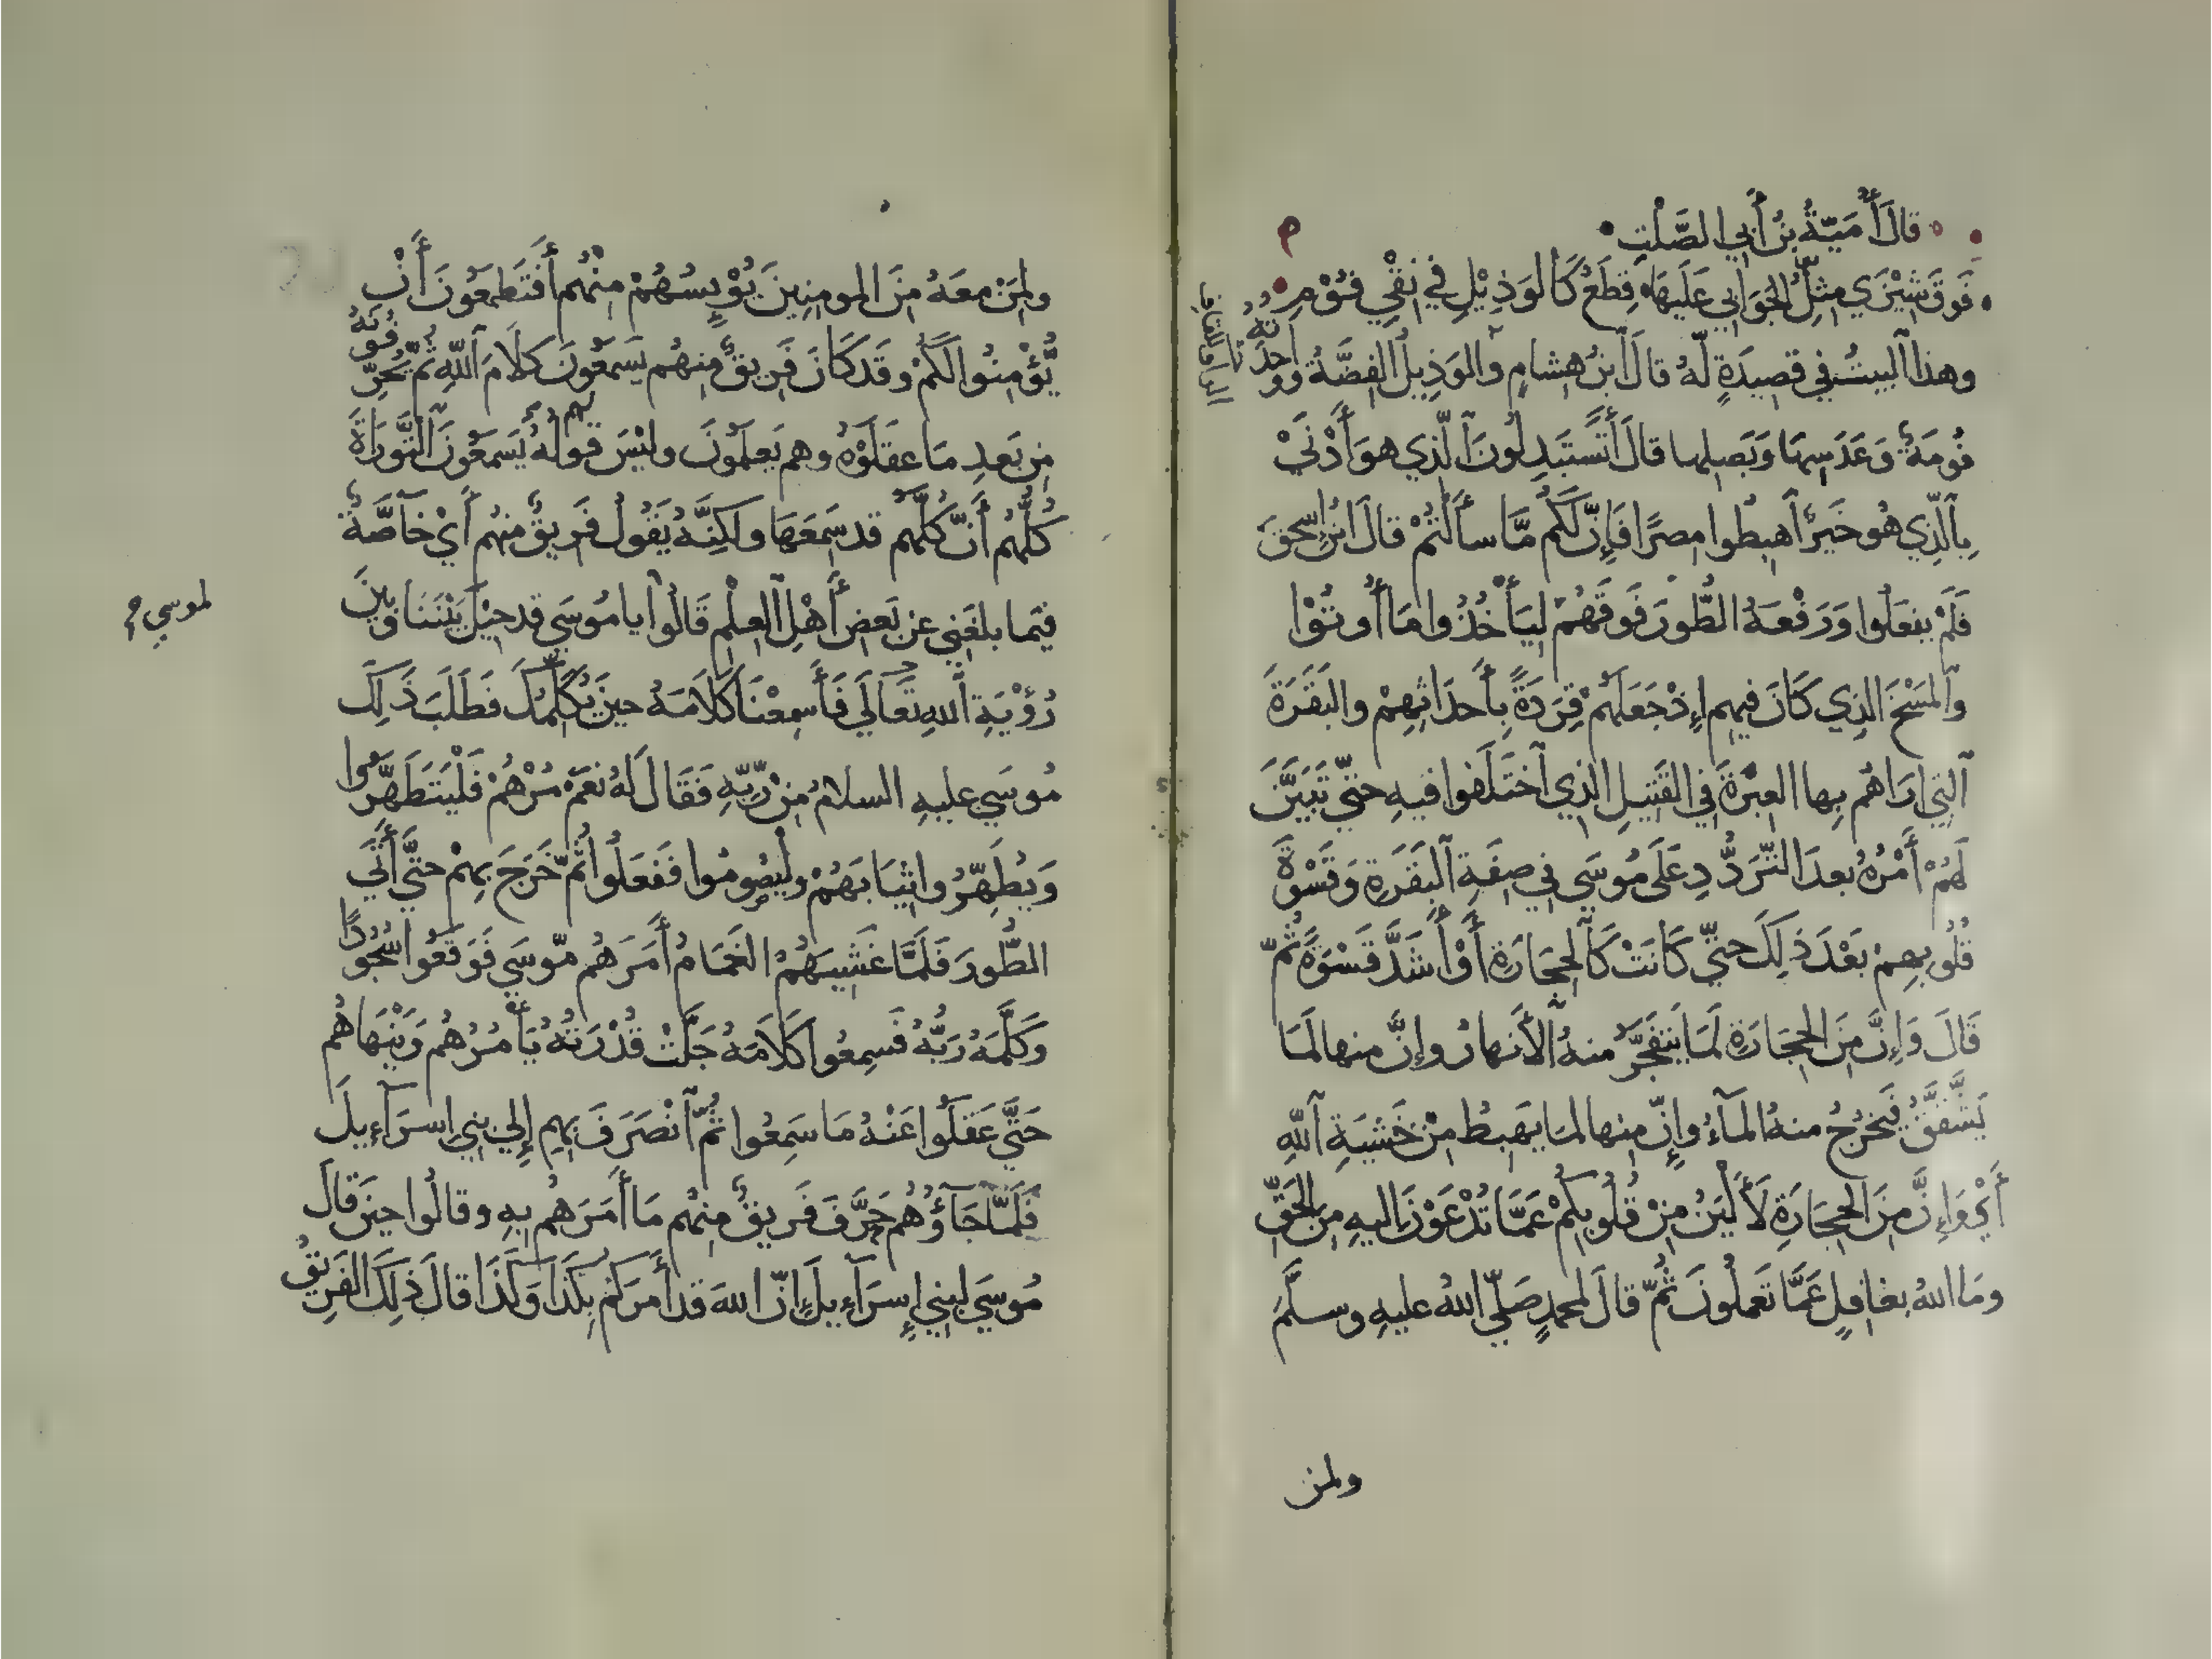 قالَ أُمَيّةُ بنُ أبي الصَّلْتِ
فَوقَ شَيْزَي مِثْلُ الجَوَابي عَلَيهَا قِطَعٌ كَالوَذِيْلِ في نِقْيِ فُوْمِ
وهذا البيتُ في قصِيدَةٍ لّهُ قالَ ابنُ هشامٍ والوَذِيلُ الفِضَّةُ وَوَاحِدَتُهُ
فُومَةٌ وَعَدَسِهَا وَبَصَلِها قالَ أَتَستَبدِلُونَ الّذِي هوَ أَدْنَي
بِالّذِي هُو خَيرٌ اهبِطُوا مِصرًا فَإِنّ لَكُم مَّا سأَلتُمْ قالَ ابنُ إِسحقَ
فَلَمْ يفعَلُوا وَرَفْعَهُ الطُّورَ فَوقَهُمْ لِيَأْخُذُوا مَا أُوتُوْا
والمَسْخَ الذِي كَانَ فيهِم إِذْ جَعَلَهُمْ قِرَدَةً بِأَحدَاثِهِمْ والبَقَرَةَ
التِي اَرَاهُم بِها العِبْرَةَ فِي القَتيلِ الذِي اختَلَفوا فيهِ حتّي تَبَيَّنَ
لَهُمْ أَمْرُهُ بعدَ التّرَدُّدِ عَلَى مُوسَي فِي صِفَةِ البَقَرَةِ وَقَسْوَةَ
قُلُوبِهِمْ بَعْدَ ذلِكَ حتّي كَانَتْ كَالحِجَارَةِ أَوْ أَشَدَّ قَسْوَةً ثُمّ
قَالَ وَإِنَّ مِنَ الحِجَارَةِ لَمَا يَتَفَجَّرُ منهُ الأَنهارُ وإِنَّ منها لَمَا
يَشَّقَّقُ فَيَخرُجُ منهُ المَآءُ وإِنّ مِنها لمَا يَهبِطُ مِنْ خَشيَةِ اللّهِ
أَيْ وَإِنَّ مِنَ الحِجَارَةِ لَأَليَنُ مِنْ قُلُوبِكُمْ عَمَّا تُدْعَوْنَ إِليهِ مِنَ الحَقِّ
ومَا اللهُ بغافِلٍ عَمَّا تَعمَلُونَ ثُمّ قالَ لمحمدٍ صَلّي اللهُ عليهِ وسلَّمَ
ولمن
ولِمَنْ معَهُ مِنَ المومنِينَ يُؤْيِسُهُمْ مِنْهُم أَفَتَطمَعُونَ أَنْ
يُّؤْمِنُوا لَكُمْ وقَد كَانَ فَرِيقٌ مِنهُم يَسمَعُونَ كلَامَ اللّهِ ثُمّ يُحَرِّفُونَهُ
مِن بَعدِ مَا عقَلُوْهُ وهم يَعلَمُونَ وليْسَ قَولُهُ يَسمَعُونَ التَّورَاةَ
كُلُّهُم أَنّ كُلَّهُم قد سَمِعَهَا ولكِنَّهُ يَقُولُ فَرِيقٌ مِنهُم أَيْ خَآصَّةً
فيمَا بلغَنِي عن بَعضِ أَهْلِ العِلْمِ قَالُوا يا مُوسَي قد حِيْلَ بَيْنَنَا وبينَ
رُؤْيَةِ اللهِ تَعَالَي فَأَسمِعْنَا كَلَامَهُ حينَ يُكَلِّمُكَ فَطَلَبَ ذَلِكَ
مُوسَي عليهِ السلامُ مِنْ رَّبِّهِ فَقَالَ لَهُ نعَمْ مُرْهُمْ فَلْيَتَطَهَّرُوا
وَيُطَهِّرُوا ثِيَابَهُمْ وليَصُومُوا ففَعَلُوا ثُمّ خَرَجَ بِهِمْ حتَّي أَتَي
الطُّورَ فَلَمَّا غَشِيَهُمُ الغَمَامُ أَمَرَهُم مّوسَي فَوَقَعُوا سُجُودًا
وَكَلَّمَهُ رَبُّهُ فَسمِعُوا كَلَامَهُ جَلَّتْ قُدْرَتُهُ يَأْمُرُهُم وَيَنْهَاهُم
حَتَّي عَقَلُوا عَنْهُ مَا سَمِعُوا ثُمّ انْصَرَفَ بِهِم إِلي بنِي إسرَآءِيلَ
فَلَمَّا جَآؤُهُم حَرَّفَ فَرِيقٌ مِنهُم مَا أَمَرَهُم بِهِ وقالُوا حينَ قالَ
مُوسَي لبنِي إِسرَآءِيلَ إِنّ اللهَ قد أَمرَكُم بِكَذَا وَكَذَا قالَ ذلِكَ الفَرِيقُ
لموسي